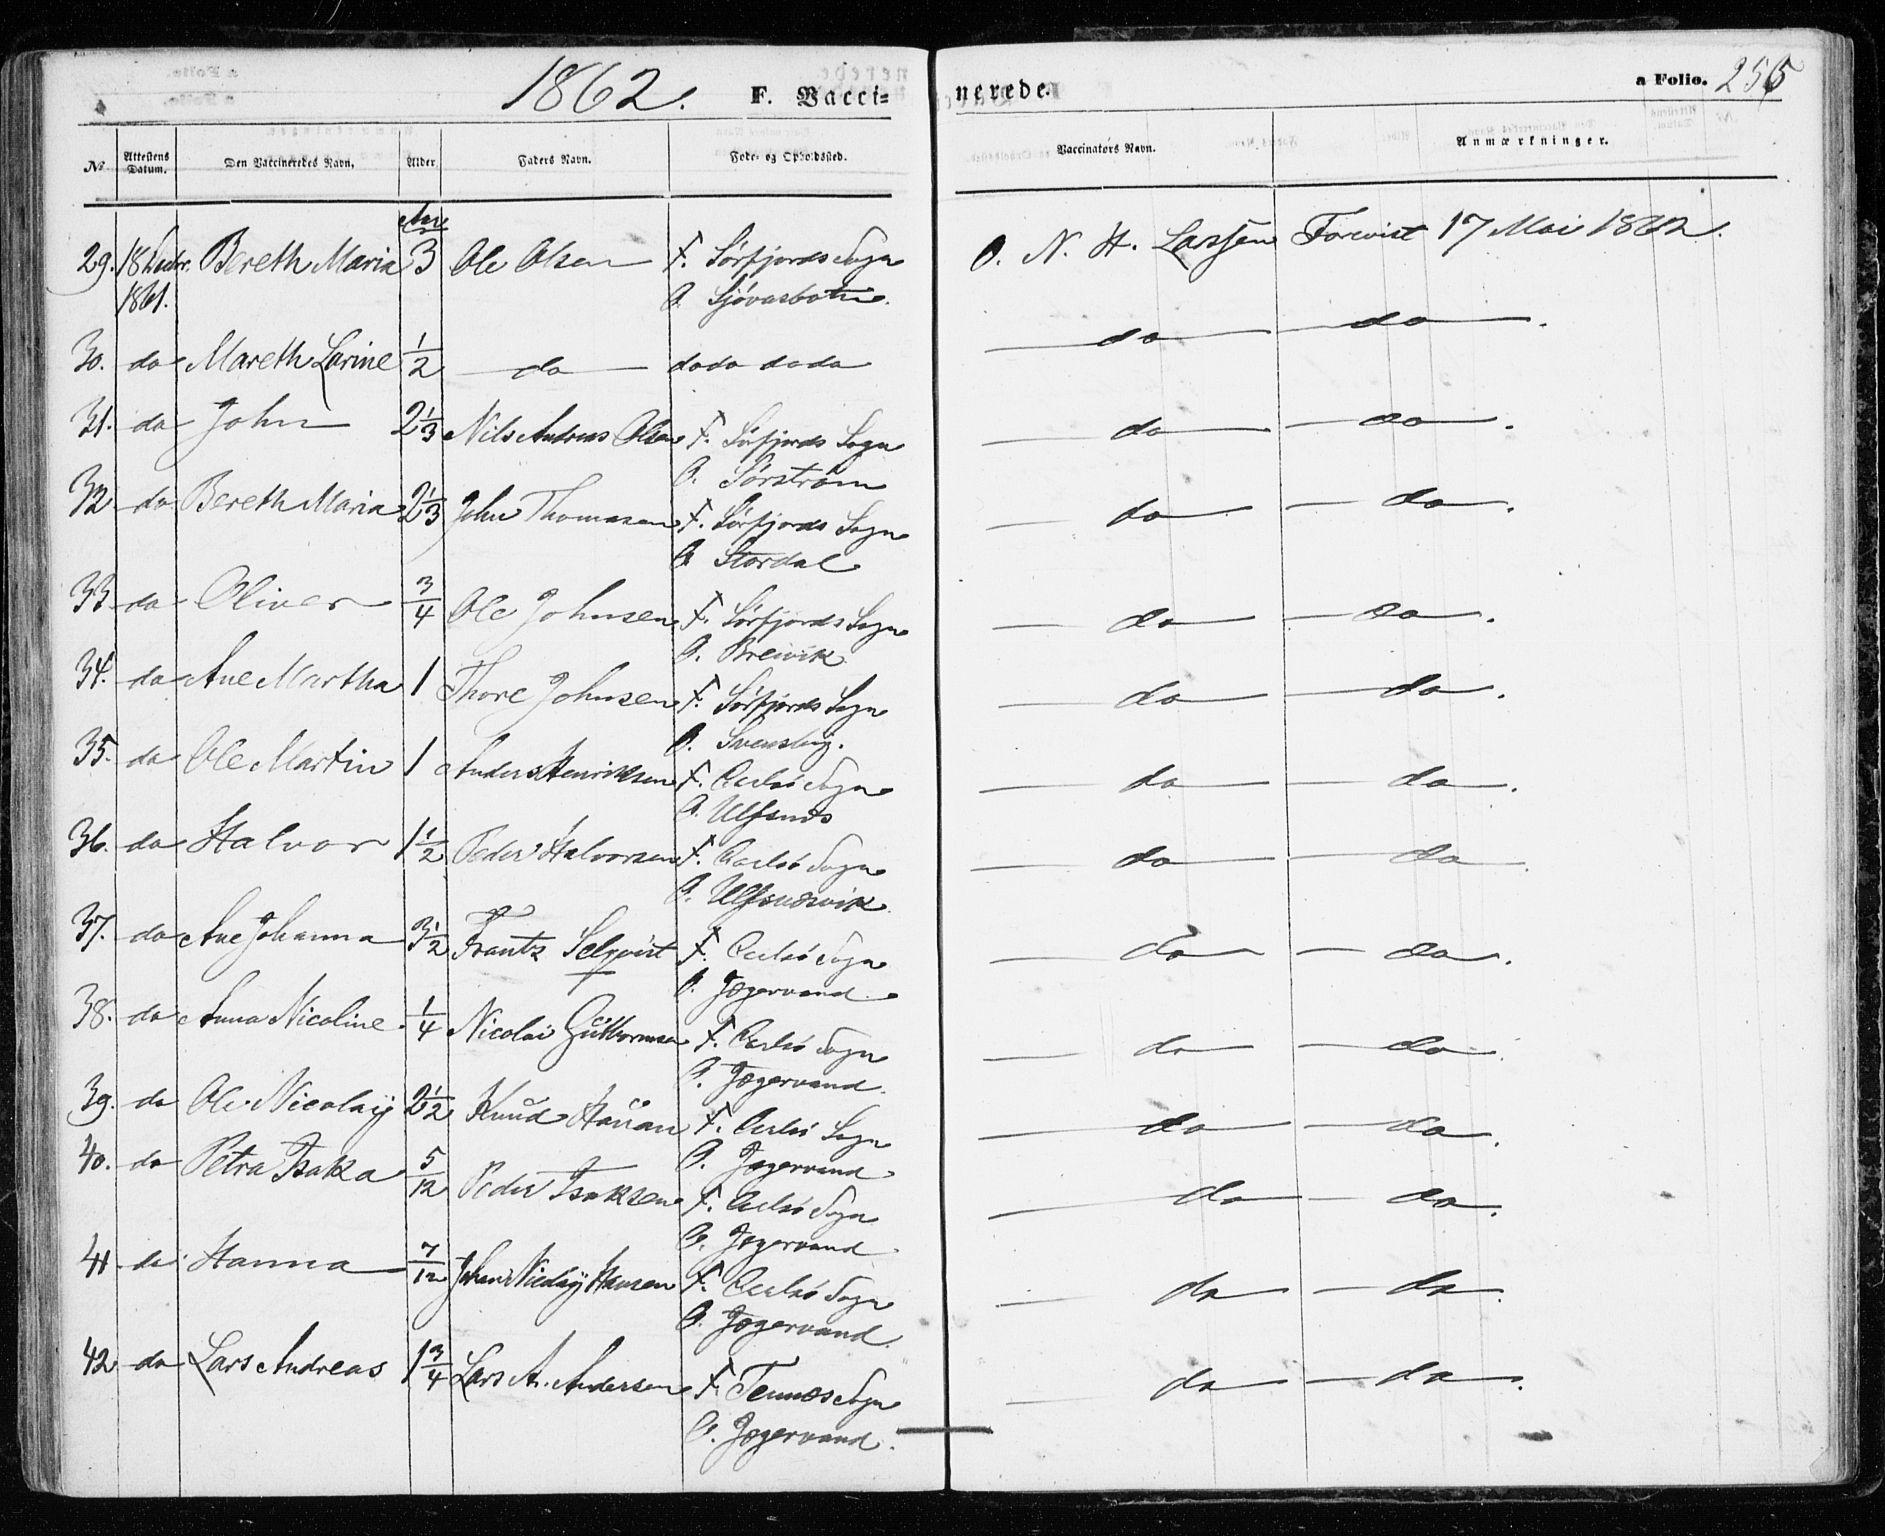 1862. F. Vacci= nerede. a Folio. 255
No Attestens Datum. Den Vaccineredes Navn, Alder Faders Navn. Føde- og Opholdssted. Vaccinatørs Navn. Anmærkninger.
Aar
29. 18 1861. Bereth Maria 3 Ole Olsen F. Sörfjords Sogn O. N. H. Larssen Forevist 17 Mai 1862.
O. Sjövasbotn.
30. do Mareth Larine 1/2 do do do do do do do.
31. do John 2 1/3 Nils Andreas Olsen F. Sörfjords Sogn do do.
O. Sörström
32 do Bereth Maria 2 1/3 John Thomasen F. Sörfjords Sogn do do.
O Stordal
33 do Oliver 3/4 Ole Johnsen F. Sörfjords Sogn do do.
O. Breivik
34. do Ane Martha 1 Thore Johnsen F. Sörfjords Sogn do do.
O. Svensby.
35. do Ole Martin 1 Anders Henriksen F. Carlsö Sogn do do.
O. Ulfsnæs
36. do Halvor 1 1/2 Peder Halvorsen F. Carlsö Sogn do do.
O. Ulfsnæsvik
37. do Ane Johanna 3 1/2 Frantz Selqvist F. Carlsö Sogn do do.
O. Jægervand
38. do Anna Nicoline 1/4 Nicolai Guttormsen F. Carlsö Sogn do do.
O. Jægervand
39. do Ole Nicolay 2 1/2 Knud Hansen F. Carlsö Sogn do do.
O. Jægervand
40. do Petra Isaka 5/12 Peder Isaksen F. Carlsö Sogn do do.
O. Jægervand
41 do Hanna 7/12 Johan Nicolay Hansen F. Carlsö Sogn do do.
O. Jægervand
42 do Lars Andreas 1 3/4 Lars A. Andersen F. Tennæs Sogn do do.
O. Jægervand.